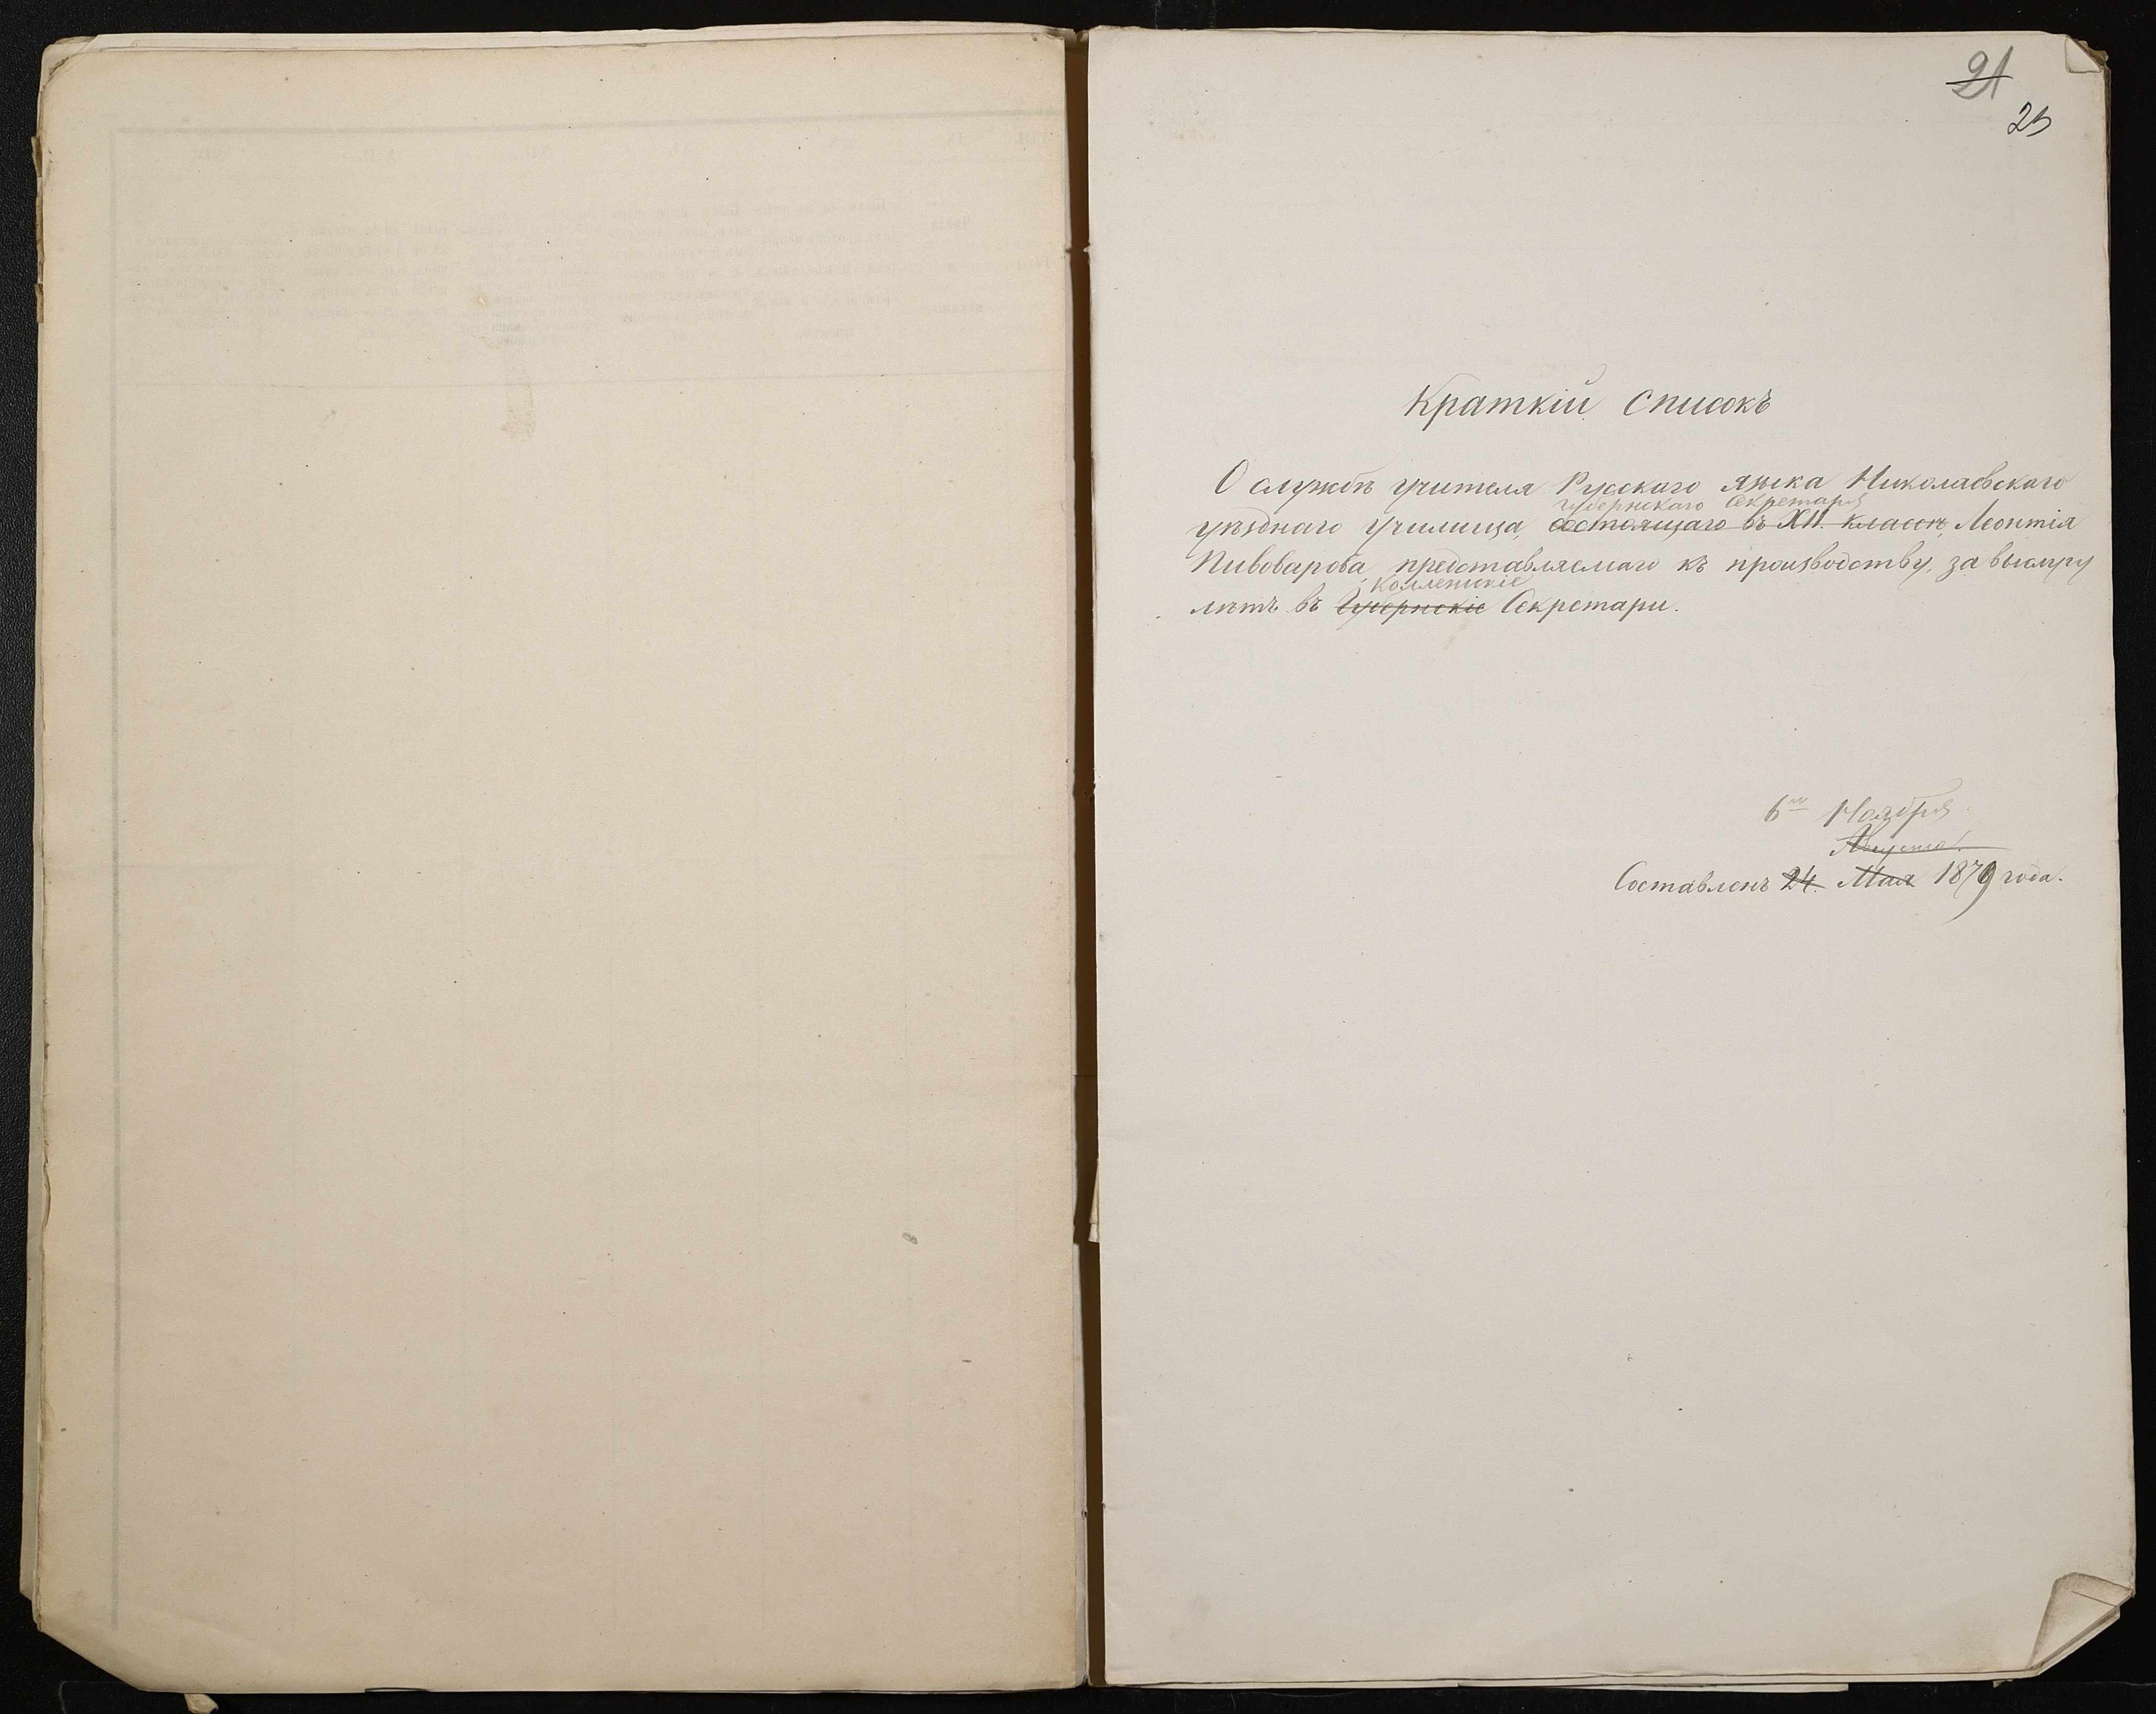 21
25
Краткій списокъ
О службѣ учителя Русскаго языка Николаевскаго
Губернскаго Секретаря
уѣзднаго училища, состоящаго въ XII. классѣ, Леонтія
Пивоварова, представляемаго къ производству, за выслугу
Коллежскіе
лѣтъ въ Губернскіе Секретари.
6го Ноября
Августа.
Составленъ 24. Мая 1879 года.